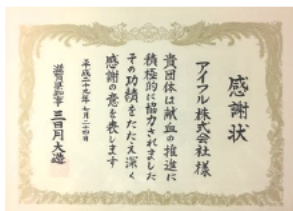 感謝状
アイフル株式会社様
貴団体は献血の推進に
積極的に協力されました
その功績をたたえ深く
感謝の意を表します
平成二十九年七月二十四日
滋賀県知事 三日月大造